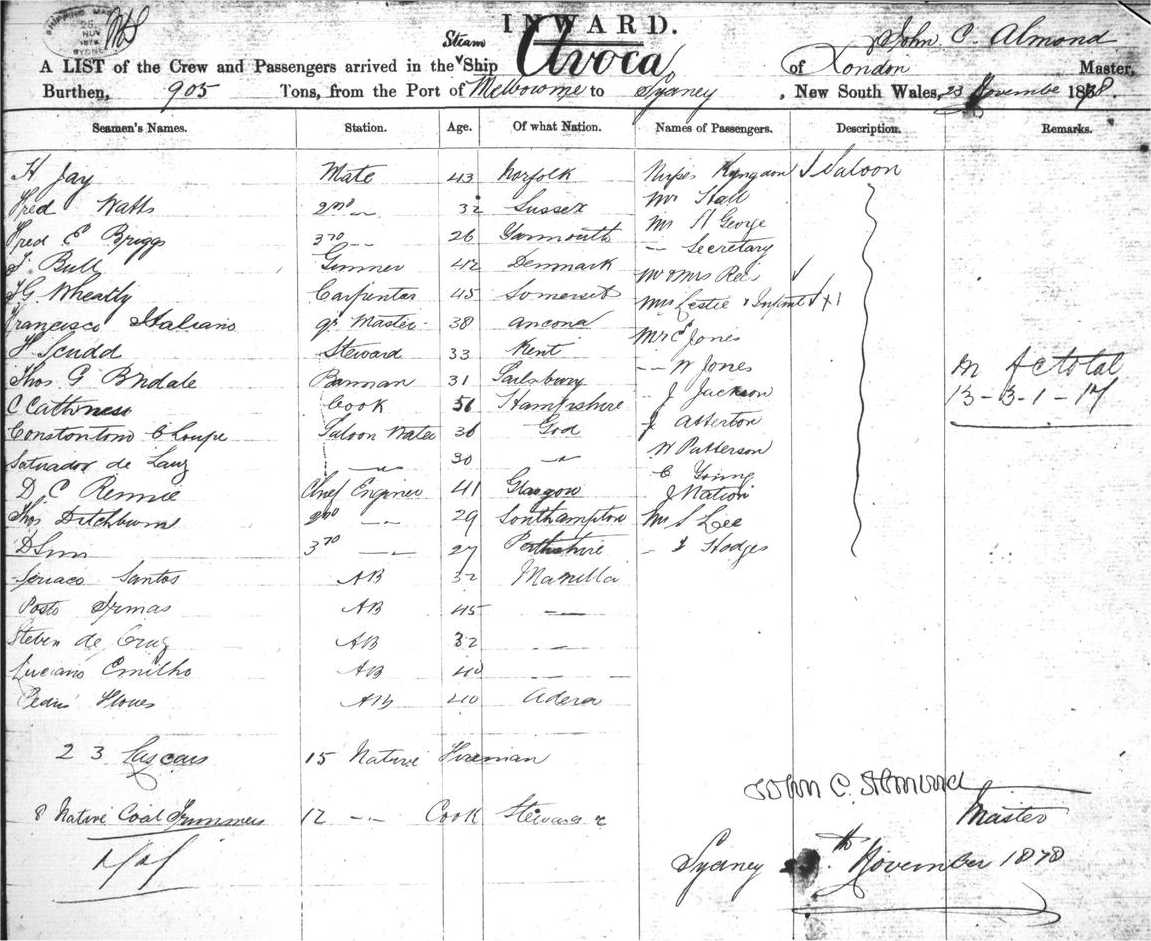 SHIPPING MAS
25
NOV
1878
SYDNEY
INWARD.
John C. Almond
A LIST of the Crew and Passengers arrived in the Steam Ship Avoca of London Master,
Burthen, 905 Tons, from the Port of Melbourne to Sydney, New South Wales, 23 November 1878.
Seamen's Names. Station. Age. Of what Nation. Names of Passengers. Description. Remarks.
H Jay Mate 43 Norfolk Misses Kyngdon Saloon
Fred Watts 2nd " 32 Sussex Mr Hall
Fred E Briggs 3rd " 26 Yarmouth Mr H George
Bull Gunner 42 Denmark " Secretary
G Wheatly Carpenter 45 Somerset Mr & Mrs
Francisco Italiano Qr Master 38 Ancona Mrs Leslie & Infant + 1
H Scudd Steward 33 Kent Mr C Jones
Thos G Barman 31 Salsbury " W Jones
C Cathness Cook 56 Hampshire J Jackson
Constontino Saloon Waiter 36 God J Atterton
de 30 " W Patterson
D. C. Rennie Chief Enginer 41 Glasgow C Young
J Nation
Thos Ditchburn 2nd " 29 Southampton Mr S Lee
D Sim 3rd " 27 Perthshire " Hodges
M A C total
13-3-1-17
Santos AB 32 Manilla
AB 45 "
Steven de Cruz AB 32 "
Luciano Emilho AB 40 "
Pedro Flores AB 40 Adera
23 Lascars 15 Native Fireman
8 Native Coal Trimmers 12 " Cook Steward
John C. Almond
Master
Sydney th November 1878